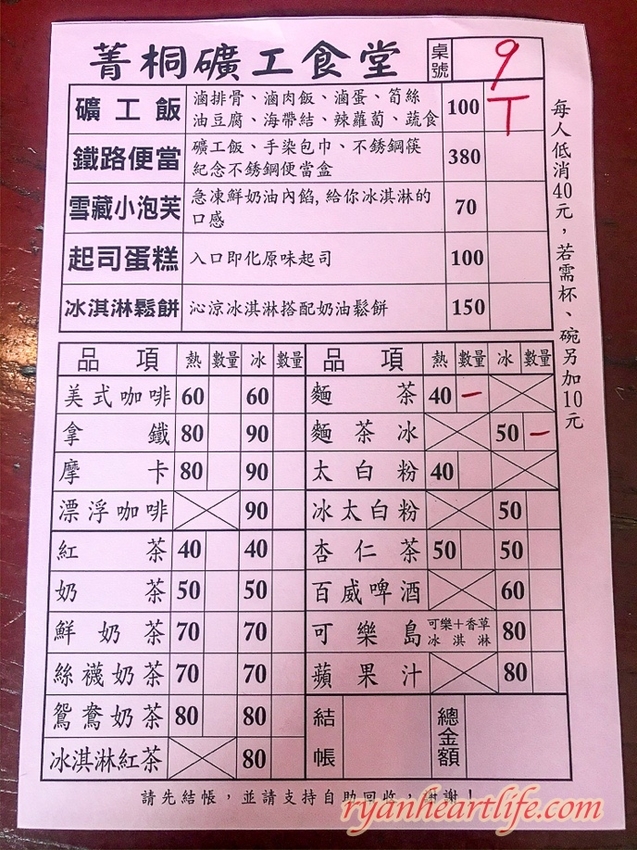 菁桐礦工食堂 桌號 9
T
礦工飯 滷排骨、滷肉飯、滷蛋、筍絲 100
油豆腐、海帶結、辣蘿蔔、蔬食
鐵路便當 礦工飯、手染包巾、不銹鋼筷 380
紀念不銹鋼便當盒
雪藏小泡芙 急凍鮮奶油內餡,給你冰淇淋的 70
口感
起司蛋糕 入口即化原味起司 100
冰淇淋鬆餅 沁涼冰淇淋搭配奶油鬆餅 150
每人低消40元，若需杯、碗另加10元
品項 熱 數量 冰 數量
美式咖啡 60 60
拿鐵 80 90
摩卡 80 90
漂浮咖啡 90
紅茶 40 40
奶茶 50 50
鮮奶茶 70 70
絲襪奶茶 70 70
鴛鴦奶茶 80 80
冰淇淋紅茶 80
品項 熱 數量 冰 數量
麵茶 40 一
麵茶冰 50 一
太白粉 40
冰太白粉 50
杏仁茶 50 50
百威啤酒 60
可樂島 可樂+香草冰淇淋 80
蘋果汁 80
結帳 總金額
請先結帳，並請支持自助回收，謝謝！
ryanheartlife.com